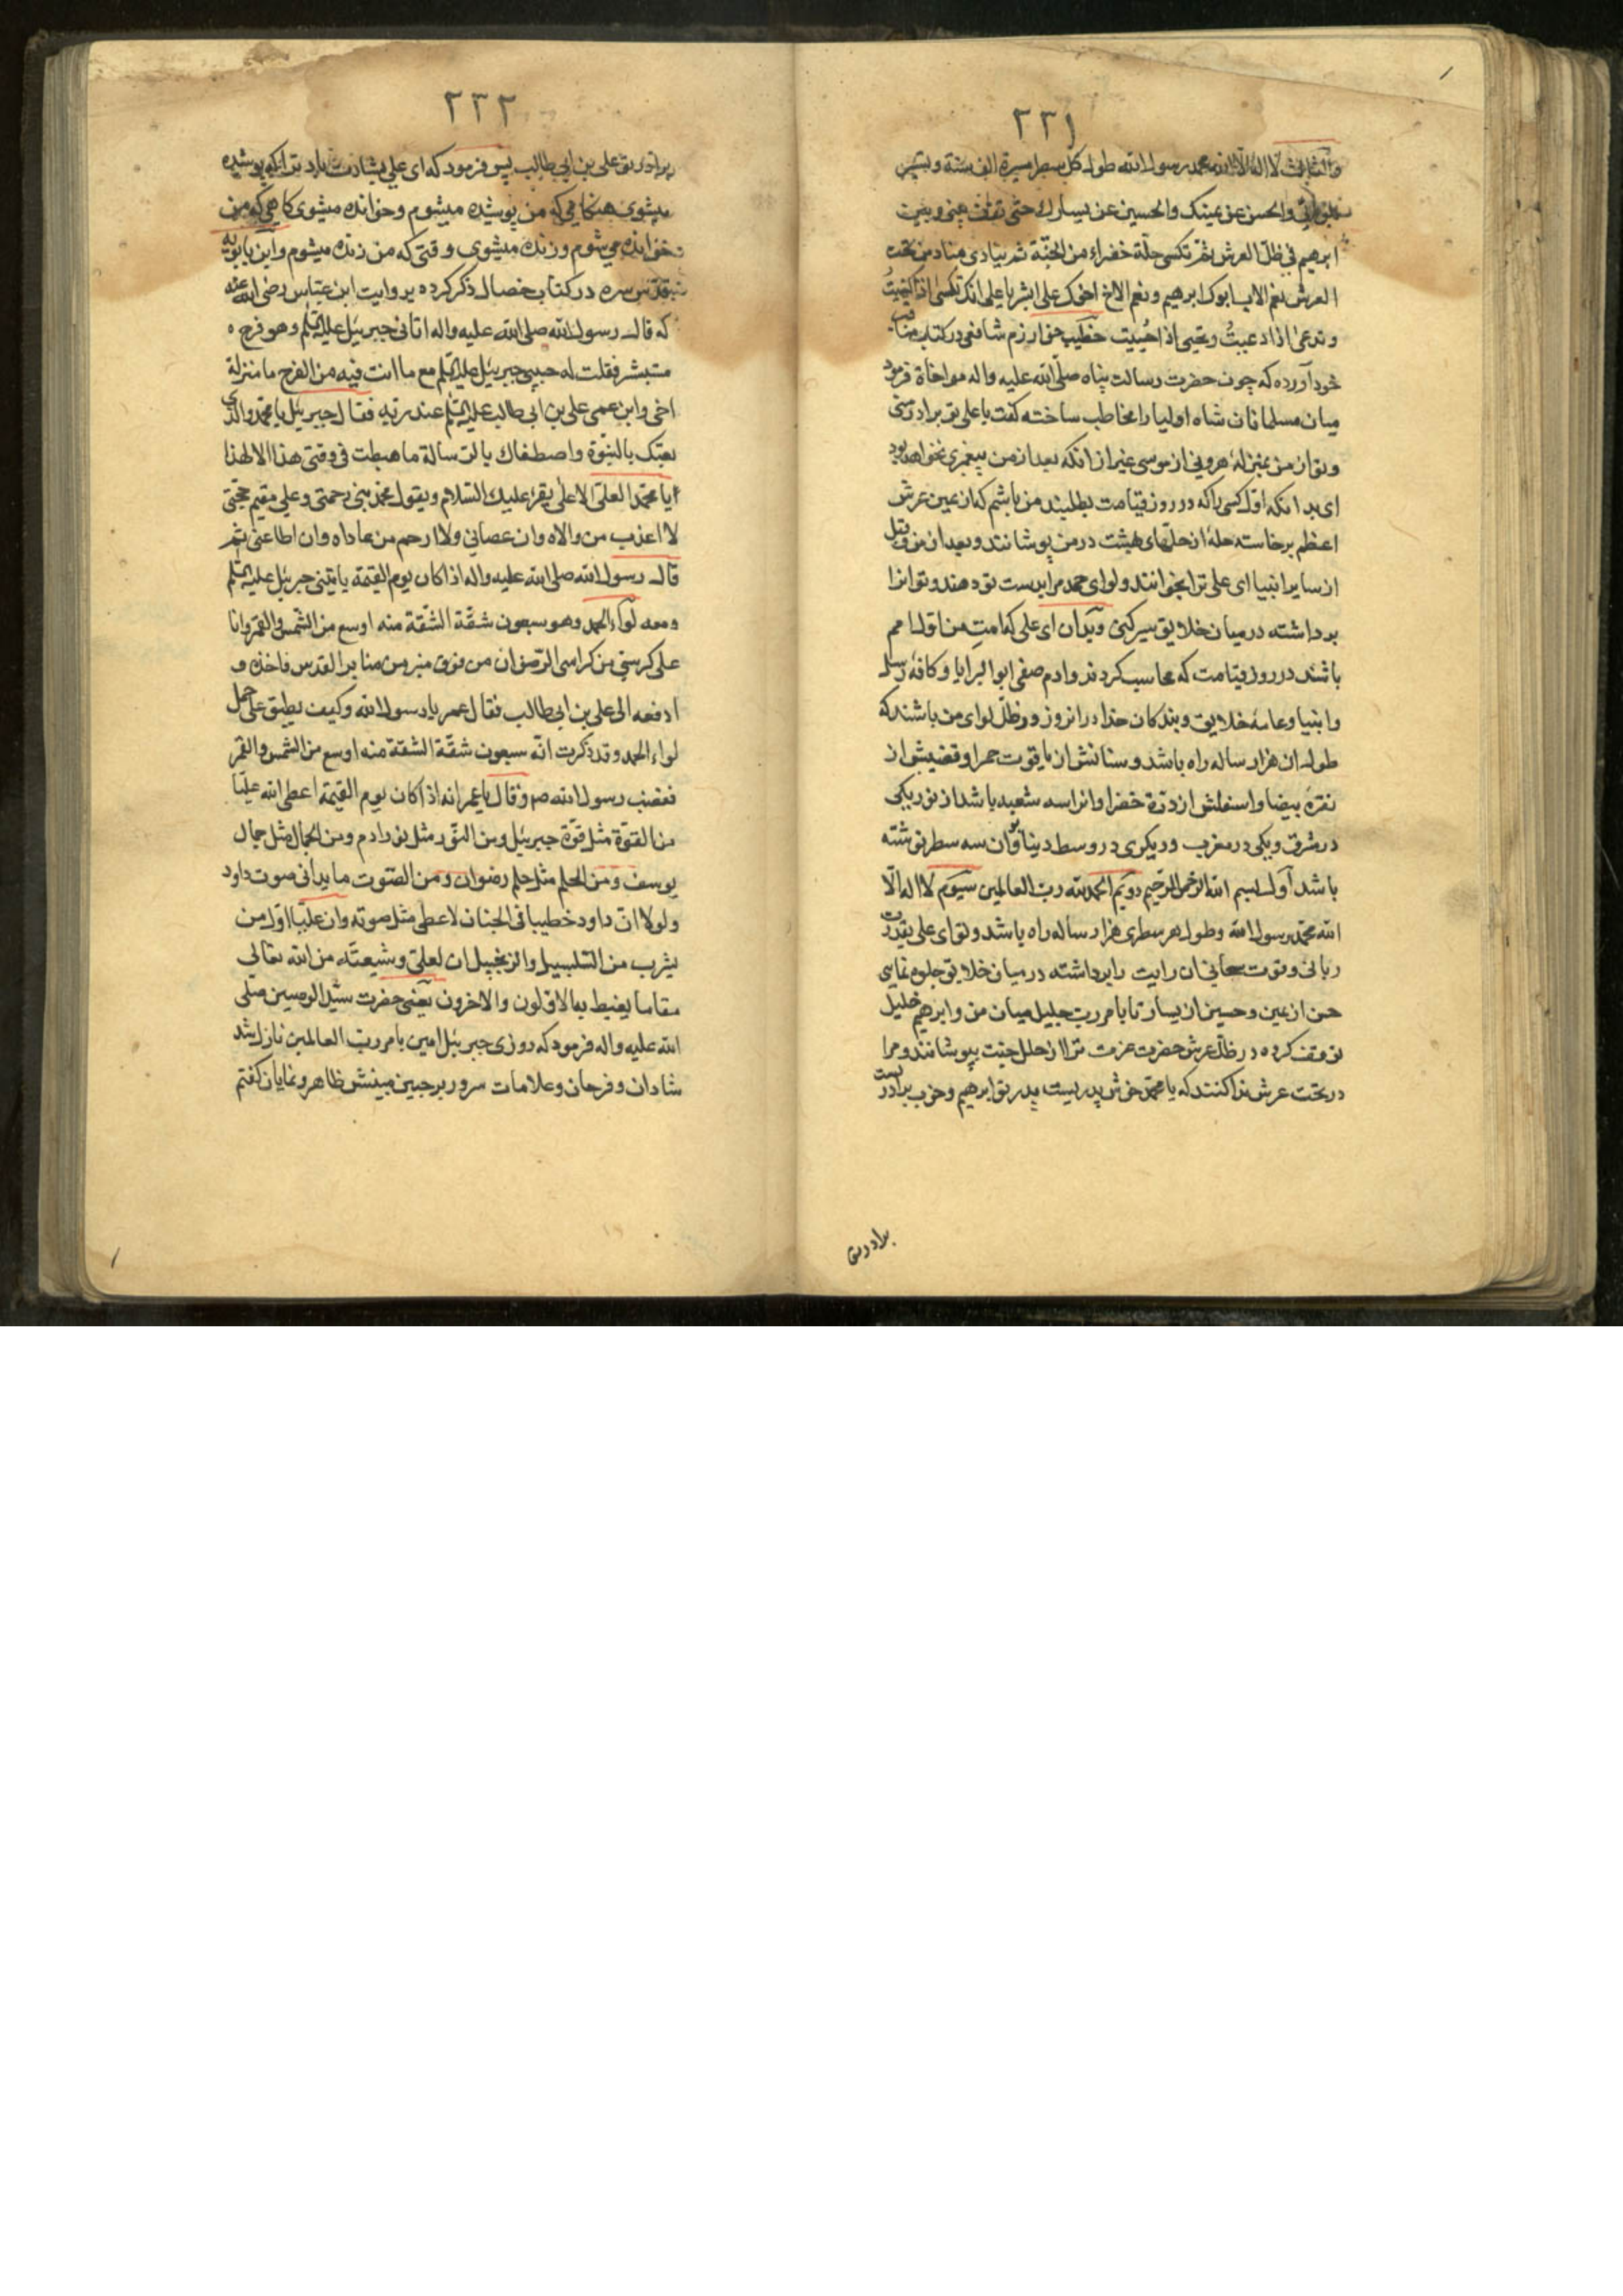 ٢٣١
والثالث لا اله الا الله محمد رسول الله طول كل سطر مسيرة الف سنة وتسير
بلوائي والحسن عن يمينك والحسين عن يسارك حتى تقف بيني وبين
ابرهيم في ظل العرش ثم تكسى حلة خضراء من الجنة ثم ينادى مناد من تحت
العرش نعم الاب ابوك ابرهيم ونعم الاخ اخوك علي ابشر يا علي انك تكسى اذا كسيت
وتدعى اذا دعيت وتحيى اذا حييت خطيب خوارزم شافعي در كتاب مناقب
خود آورده كه چون حضرت رسالت پناه صلى الله عليه واله مواخاة فرمود
ميان مسلمانان شاه اوليا را مخاطب ساخته كفت يا علي تو برادر منى
وتو از من بمنزلهٔ هرونى از موسى غير از انكه بعد از من پيغمبرى نخواهد بود
اى بدانكه اول كسى را كه در روز قيامت بطلبند من باشم كه از يمين عرش
اعظم برخاسته حلهٔ از حلهاى بهشت در من پوشانند وبعد از من وقبل
از ساير انبيا اى علي ترا بخوانند ولواى حمد مرا بدست تو دهند وتو انرا
برداشته در ميان خلايق سير كنى وبدان اى علي كه امت من اول امم
باشند در روز قيامت كه محاسب كردند وادم صفى ابو البرايا وكافهٔ رسل
وانبيا وعامهٔ خلايق وبندكان خدا در انروز در ظل لواى من باشند كه
طول ان هزار ساله راه باشد وسنانش از ياقوت حمرا وقضيبش از
نقرهٔ بيضا واسفلش از درهٔ خضرا وانرا سه شعبه باشد از نور يكى
در مشرق ويكى در مغرب وديكرى در وسط دنيا وبر ان سه سطر نوشته
باشد اول بسم الله الرحمن الرحيم دويم الحمد لله رب العالمين سيوم لا اله الا
الله محمد رسول الله وطول هر سطرى هزار ساله راه باشد وتو اى علي بقدرت
ربانى وقوت سبحانى ان رايت را برداشته در ميان خلايق جلوه نمايى
حسن از يمين وحسين از يسار تا بامر رب جليل ميان من وابرهيم خليل
توقف كرده در ظل عرش حضرت عزت ترا از حلل جنت بپوشانند ومرا
در تحت عرش ندا كنند كه يا محمد خوش پدريست پدر تو ابرهيم وخوب برادريست
برادر تو
٢٣٢
برادر تو علي بن ابي طالب پس فرمود كه اى علي بشارت باد ترا كه پوشيده
ميشوى هنكامى كه من پوشيده ميشوم وخوانده ميشوى كاهى كه من
خوانده مى شوم وزنده ميشوى وقتى كه من زنده ميشوم وابن بابويه
قدس سره در كتاب خصال ذكر كرده بروايت ابن عباس رضى الله عنه
كه قال رسول الله صلى الله عليه واله اتانى جبرئيل عليه السلم وهو فرح
متبشر فقلت له حبيبى جبرئيل عليه السلم مع ما انت فيه من الفرح ما منزلة
اخى وابن عمى علي بن ابي طالب عليه السلم عند ربه فقال جبرئيل يا محمد والذى
بعثك بالنبوة واصطفاك بالرسالة ما هبطت فى وقتى هذا الا لهذا
يا محمد العلى الاعلى يقرء عليك السلام ويقول محمد نبى رحمتى وعلي مقيم حجتى
لا اعذب من والاه وان عصانى ولا ارحم من عاداه وان اطاعنى ثم
قال رسول الله صلى الله عليه واله اذا كان يوم القيمة ياتينى جبرئيل عليه السلم
ومعه لواء الحمد وهو سبعون شقة الشقة منه اوسع من الشمس والقمر وانا
على كرسى من كراسى الرضوان من فوق منبر من منابر القدس فاخذه و
ادفعه الى علي بن ابي طالب فقال عمر يا رسول الله وكيف يطيق علي حمل
لواء الحمد وقد ذكرت انه سبعون شقة الشقة منه اوسع من الشمس والقمر
فغضب رسول الله ص وقال يا عمر انه اذا كان يوم القيمة اعطى الله عليا
من القوة مثل قوة جبرئيل ومن النور مثل نور ادم ومن الجمال مثل جمال
يوسف ومن الحلم مثل حلم رضوان ومن الصوت ما يدانى صوت داود
ولولا ان داود خطيبا فى الجنان لاعطى مثل صوته وان عليا اول من
يشرب من السلسبيل والزنجبيل ان لعلي وشيعته من الله تعالى
مقاما يغبط به الاولون والاخرون يعنى حضرت سيد المرسلين صلى
الله عليه واله فرمود كه روزى جبرئيل امين بامر رب العالمين نازل شد
شادان وفرحان وعلامات سرور بر جبين مبينش ظاهر ونمايان كفتم